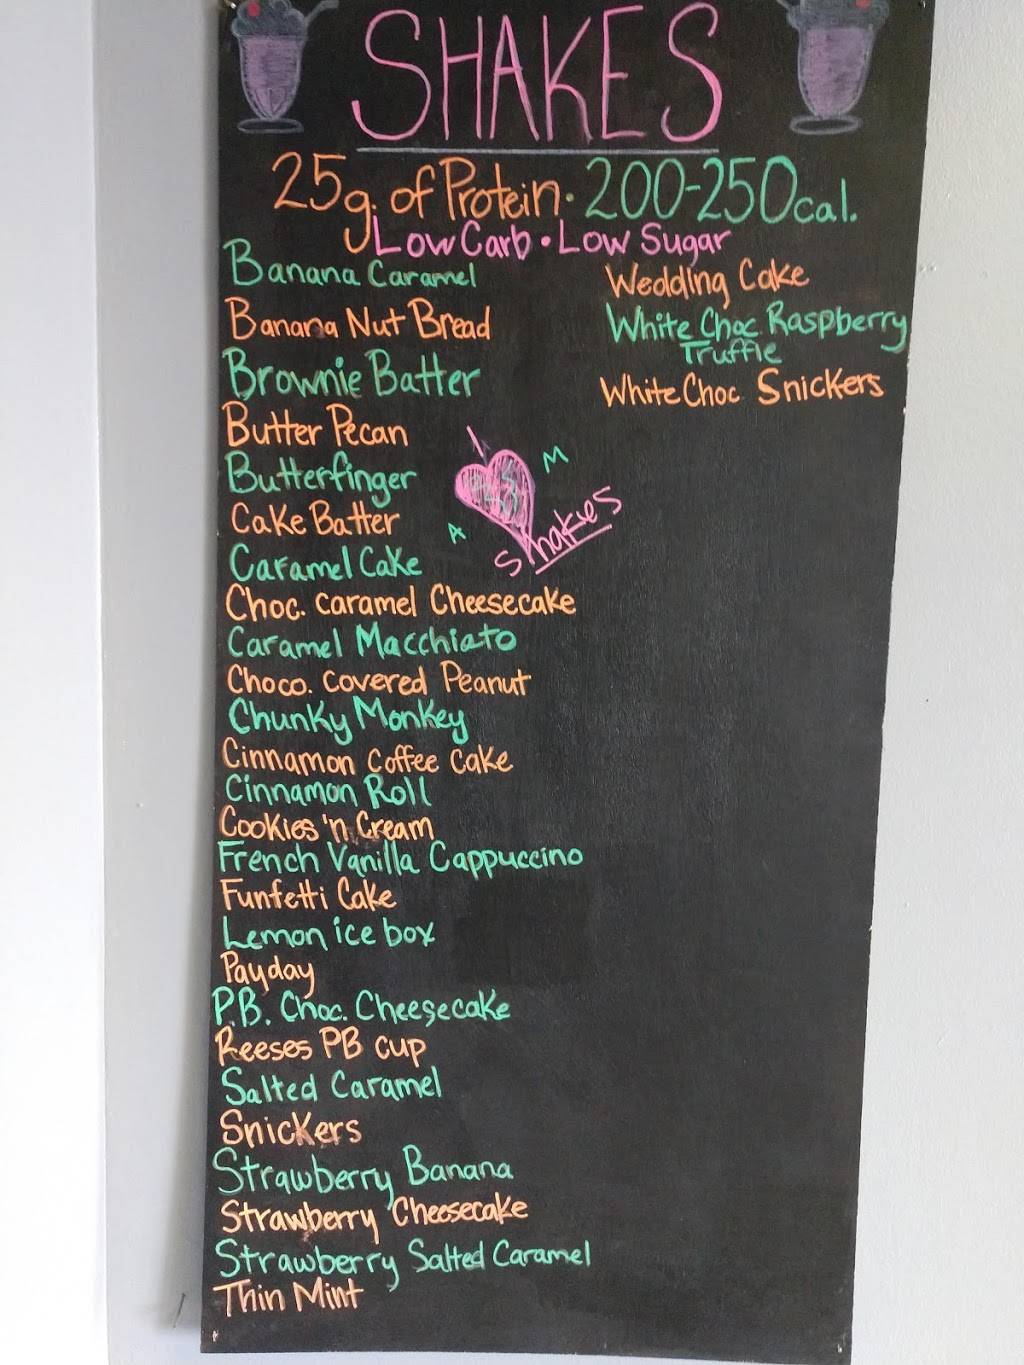 SHAKES
25g. of Protein · 200-250cal.
Low Carb · Low Sugar
Banana Caramel
Banana Nut Bread
Brownie Batter
Butter Pecan
Butterfinger
Cake Batter
Caramel Cake
Choc. Caramel Cheesecake
Caramel Macchiato
Choco. Covered Peanut
Chunky Monkey
Cinnamon Coffee Cake
Cinnamon Roll
Cookies 'n Cream
French Vanilla Cappuccino
Funfetti Cake
Lemon ice box
Payday
P.B. Choc. Cheesecake
Reeses PB cup
Salted Caramel
Snickers
Strawberry Banana
Strawberry Cheesecake
Strawberry Salted Caramel
Thin Mint
Wedding Cake
White Choc Raspberry
Truffle
White Choc Snickers
I
M
A
Shakes